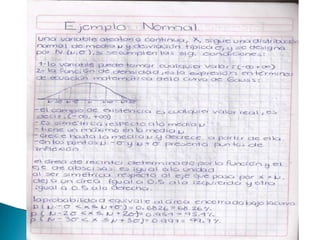 Ejemplo Normal
Una variable aleatoria continua, X, sigue una distribución
normal de media μ y desviación típica σ, y se designa
por N(μ,σ), si se cumplen las sig. condiciones:
1- la variable puede tomar cualquier valor: (-∞,+∞)
2- la función de densidad, es la expresión en términos
de ecuación matemática de la curva de Gauss:
-el campo de existencia es cualquier valor real, es
decir, (-∞, +∞)
-Es simétrica respecto a la media μ
-tiene un máximo en la media μ
-Crece hasta la media μ y decrece a partir de ella
-en los puntos μ-σ y μ+σ presenta puntos de
inflexión.
el área del recinto determinado por la función y el
eje de abscisas es igual a la unidad
al ser simétrica respecto al eje que pasa por x=μ,
deja un área igual a 0.5 a la izquierda y otra
igual a 0.5 a la derecha.
la probabilidad equivale al área encerrada bajo la curva
p(μ-σ < x ≤ μ+σ)= 0.6826 = 68.26%
p(μ-2σ < x ≤ μ+2σ)= 0.954 = 95.4%
p(μ-3σ < x ≤ μ+3σ)= 0.997 = 99.7%